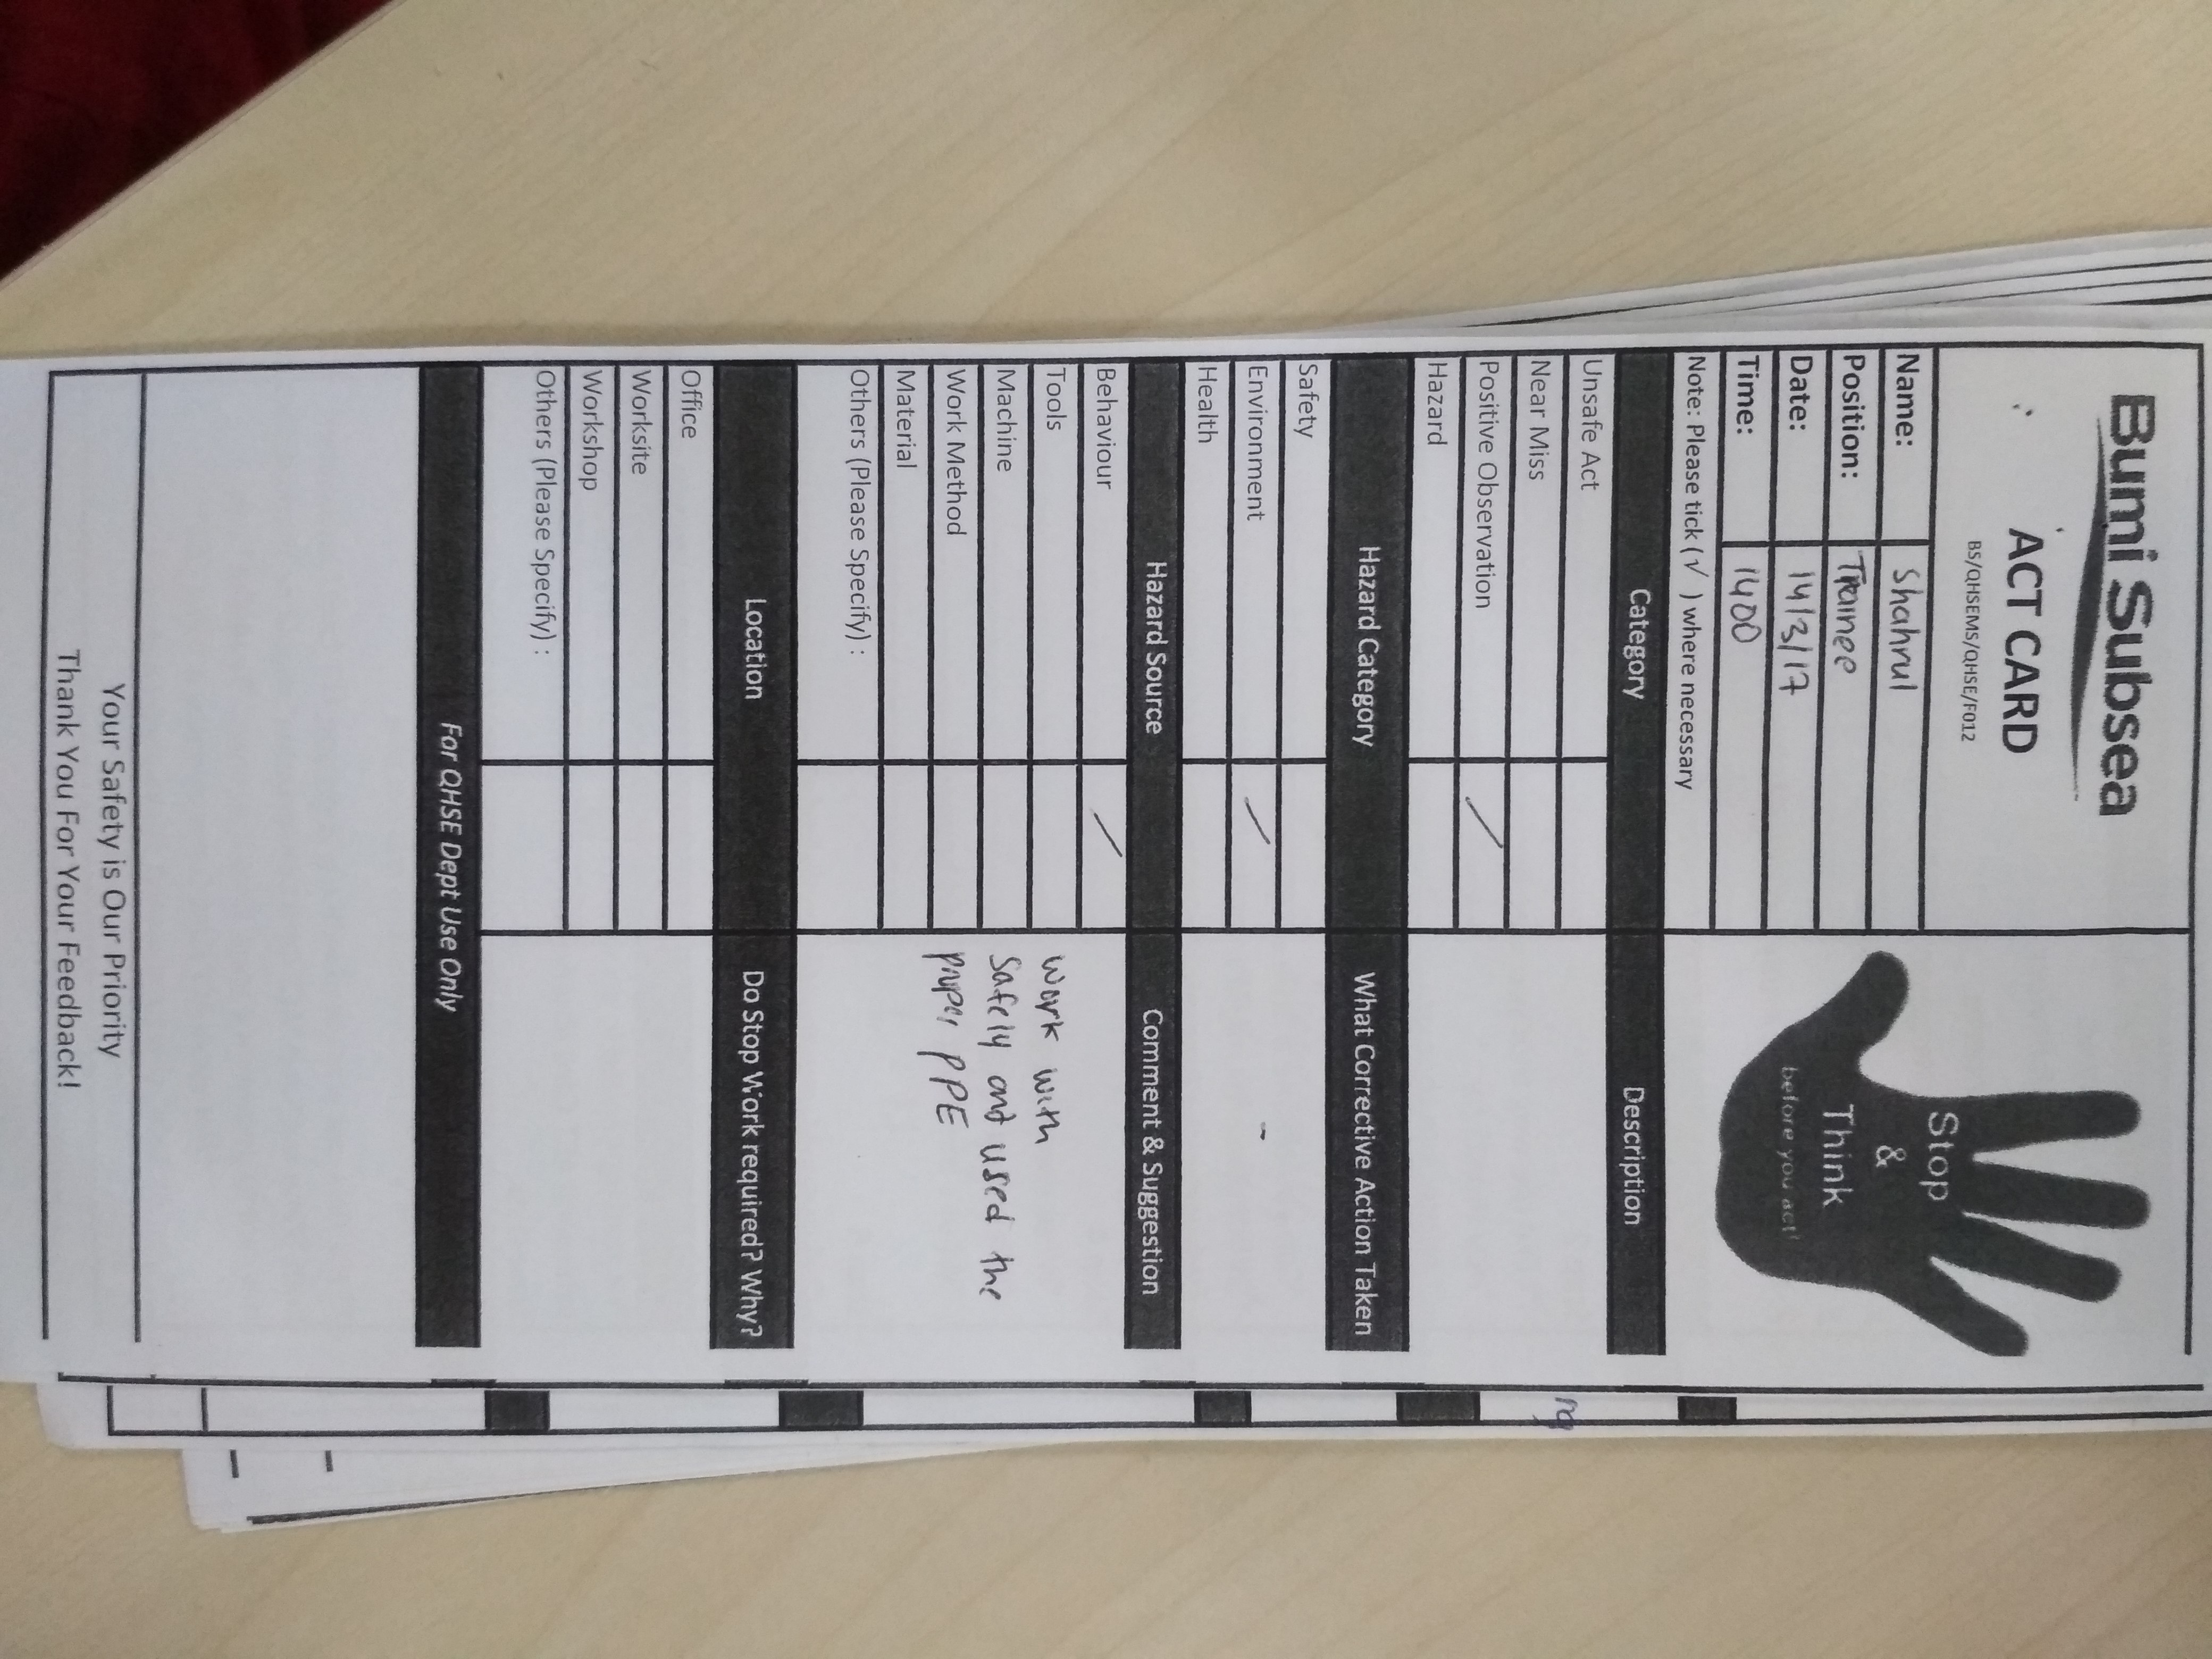 Bumi Subsea
ACT CARD
BS/QHSEMS/QHSE/F012
Stop
&
Think
before you act!
Name: Shahrul
Position: Trainee
Date: 14/3/17
Time: 1400
Note: Please tick (√ ) where necessary
Category Description
Unsafe Act
Near Miss
Positive Observation /
Hazard
Hazard Category What Corrective Action Taken
Safety
Environment / -
Health
Hazard Source Comment & Suggestion
Behaviour /
Tools
Machine
Work Method
Material
Others (Please Specify) :
work with
safely and used the
proper PPE
Location Do Stop Work required? Why?
Office
Worksite
Workshop
Others (Please Specify) :
For QHSE Dept Use Only
Your Safety is Our Priority
Thank You For Your Feedback!